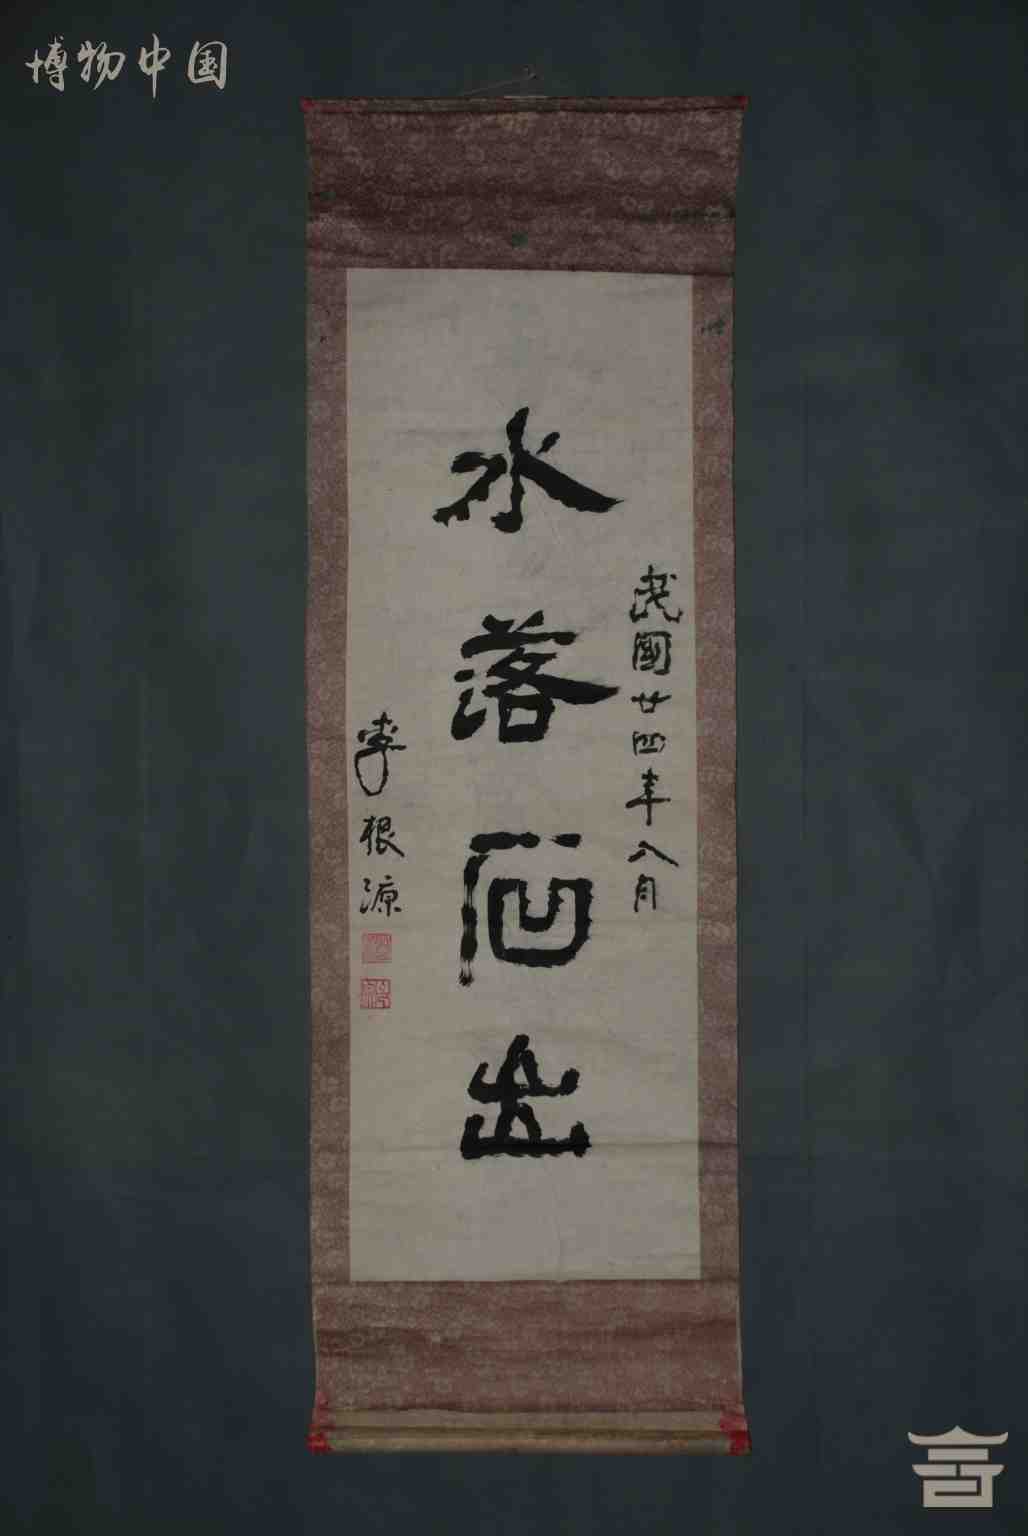 博物中国
民國廿四年八月
水落石出
李根源